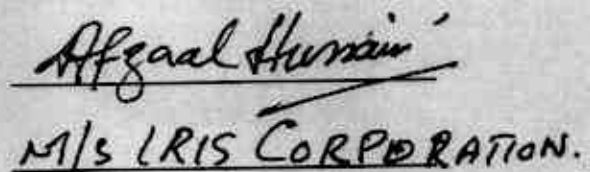 Afzaal Hussain
M/s IRIS CORPORATION.